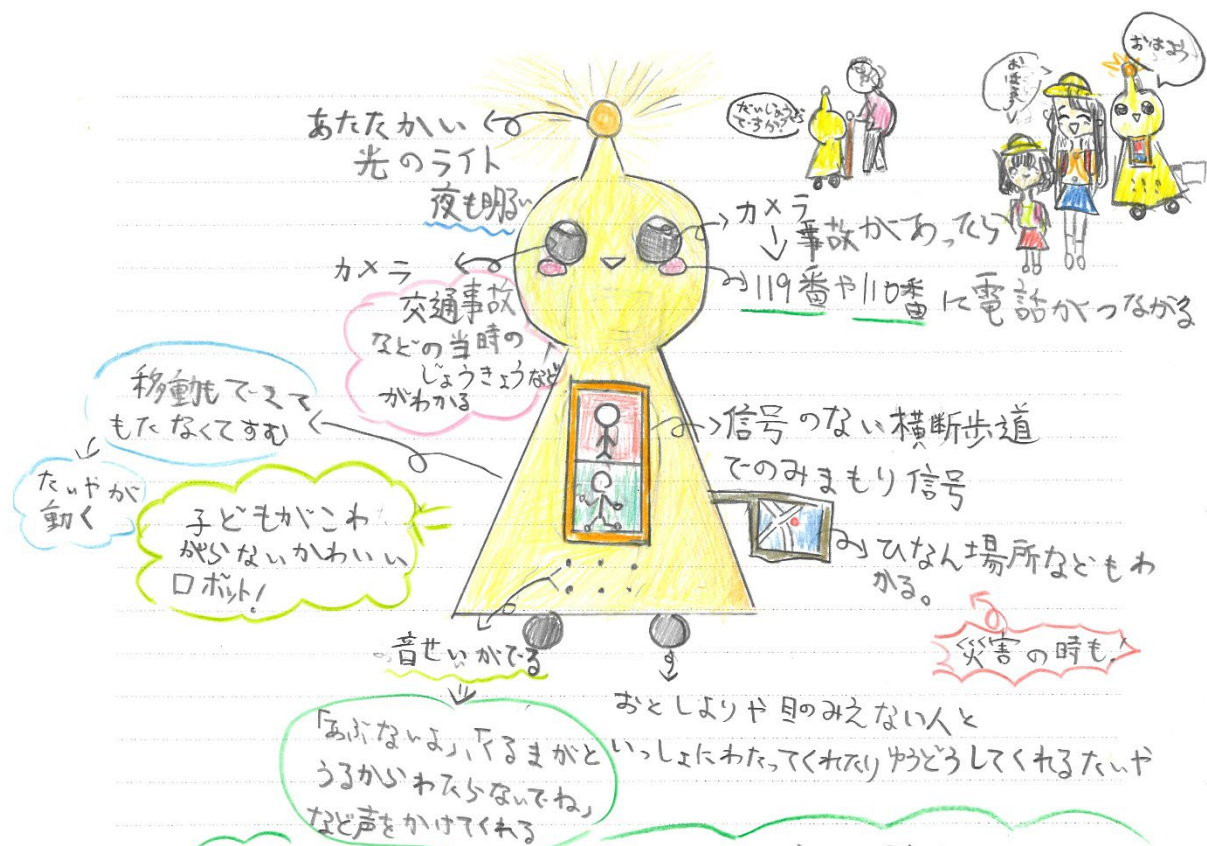 あたたかい
光のライト
夜も明るい
だいじょうぶ
ですか?
おはよう
カメラ
事故があったら
119番や110番に電話がつながる
カメラ
交通事故
などの当時の
じょうきょうなど
がわかる
移動もできて
もたなくてすむ
たいやが
動く
子どもがこわ
がらないかわいい
ロボット!
信号のない横断歩道
でのみまもり信号
ひなん場所などもわ
かる。
災害の時も!
音せいがでる
「あぶないよ」、「くるまがと
うるからわたらないでね」
など声をかけてくれる
おとしよりや目のみえない人と
いっしょにわたってくれたりゆうどうしてくれるたいや